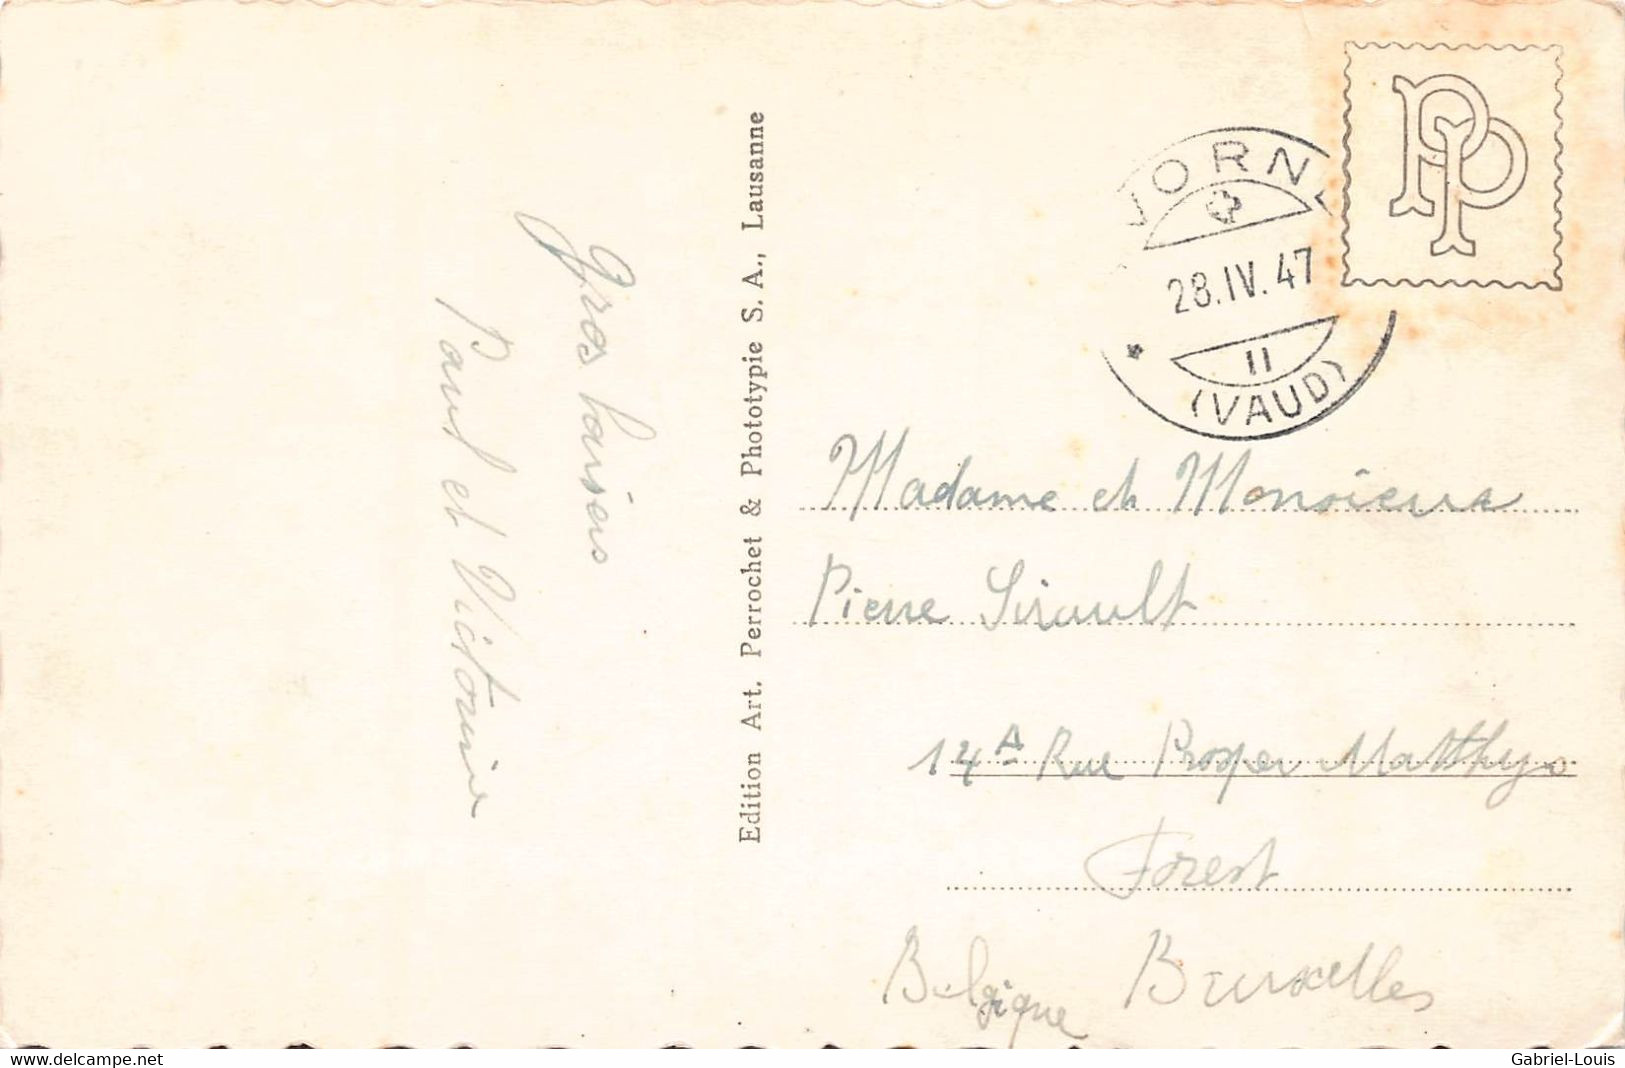 Gros baisers
Paul et Victorine
Edition Art. Perrochet & Phototypie S. A., Lausanne
PP
YVORNE
28.IV.47
11
(VAUD)
Madame et Monsieur
Pierre Sirault
14A Rue Prosper Matthys
Forest
Belgique Bruxelles
www.delcampe.net
Gabriel-Louis